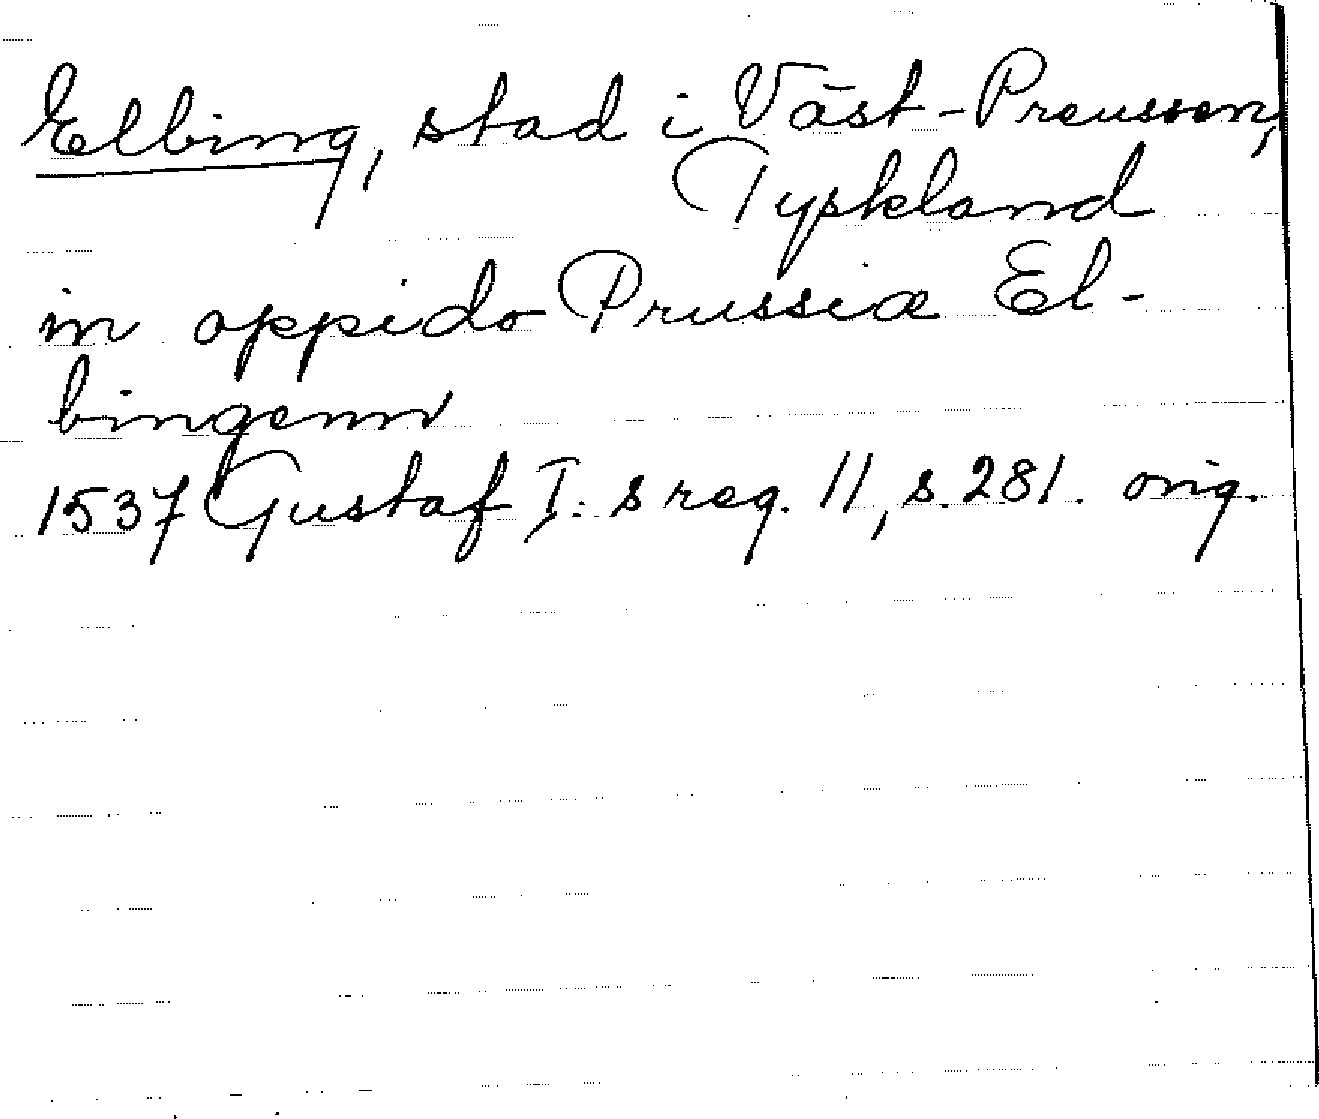 Elbing, stad i Väst-Preussen,
Tyskland
in oppido Prussiæ El-
bingenn
1537 Gustaf I:s reg. 11, s. 281. orig.